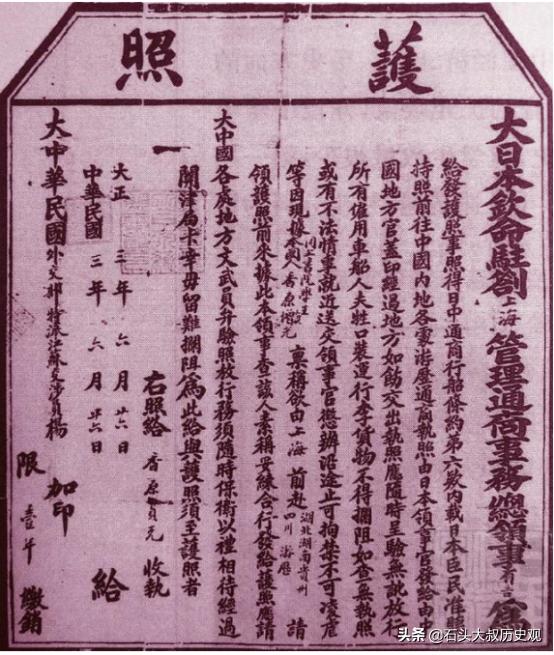 護照
大日本欽命駐劄上海管理通商事務總領事有吉
給發護照事照得日中通商行船條約第六款內載日本臣民准
持照前往中國內地各處游歷通商執照由日本領事官發給由
國地方官蓋印經過地方如飭交出執照應隨時呈驗無訛放行
所有僱用車船人夫牲口裝運行李貨物不得攔阻如查無執照
或有不法情事就近送交領事官懲辦沿途止可拘禁不可凌虐
等因現據本國人香原元 稟稱欲由上海 前赴 湖北湖南貴州四川 游歷 請
領護照前來據此本領事查該人素稱妥練合行發給護照應請
大中國各處地方文武員弁驗照放行務須隨時保衛以禮相待經過
關津局卡幸毋留難攔阻為此給與護照須至護照者
一 右照給 香原元 收執
大正 三年 六月 廿六日
中華民國 三年 六月 廿六日 給
大中華民國外交部特派江蘇交涉員楊 加印
限壹年繳銷
头条 @石头大叔历史观